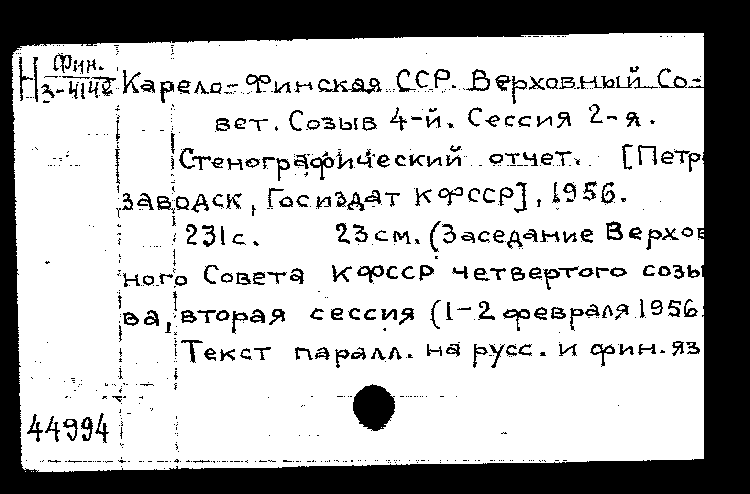 Фин.
Н 3-4142 Карело-Финская ССР. Верховный Со-
вет. Созыв 4-й. Сессия 2-я.
Стенографический отчет. [Петро
заводск, Госиздат КФССР], 1956.
231с. 23см. (Заседание Верхов
ного Совета КФССР четвертого созы
ва, вторая сессия (1-2 февраля 1956
Текст паралл. на русс. и фин. яз
44994